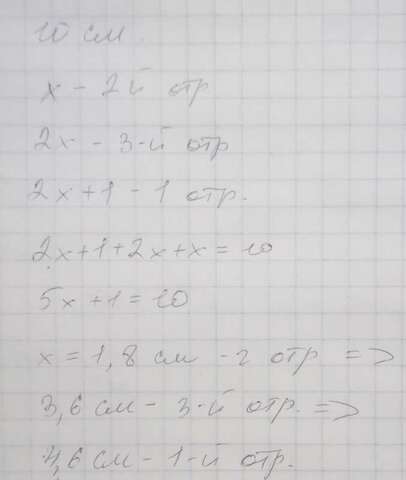 10 см.
x - 2й отр
2x - 3-й отр
2x+1 - 1 отр.
2x+1+2x+x=10
5x+1=10
x=1,8 см - 2 отр =>
3,6 см - 3-й отр. =>
4,6 см - 1-й отр.